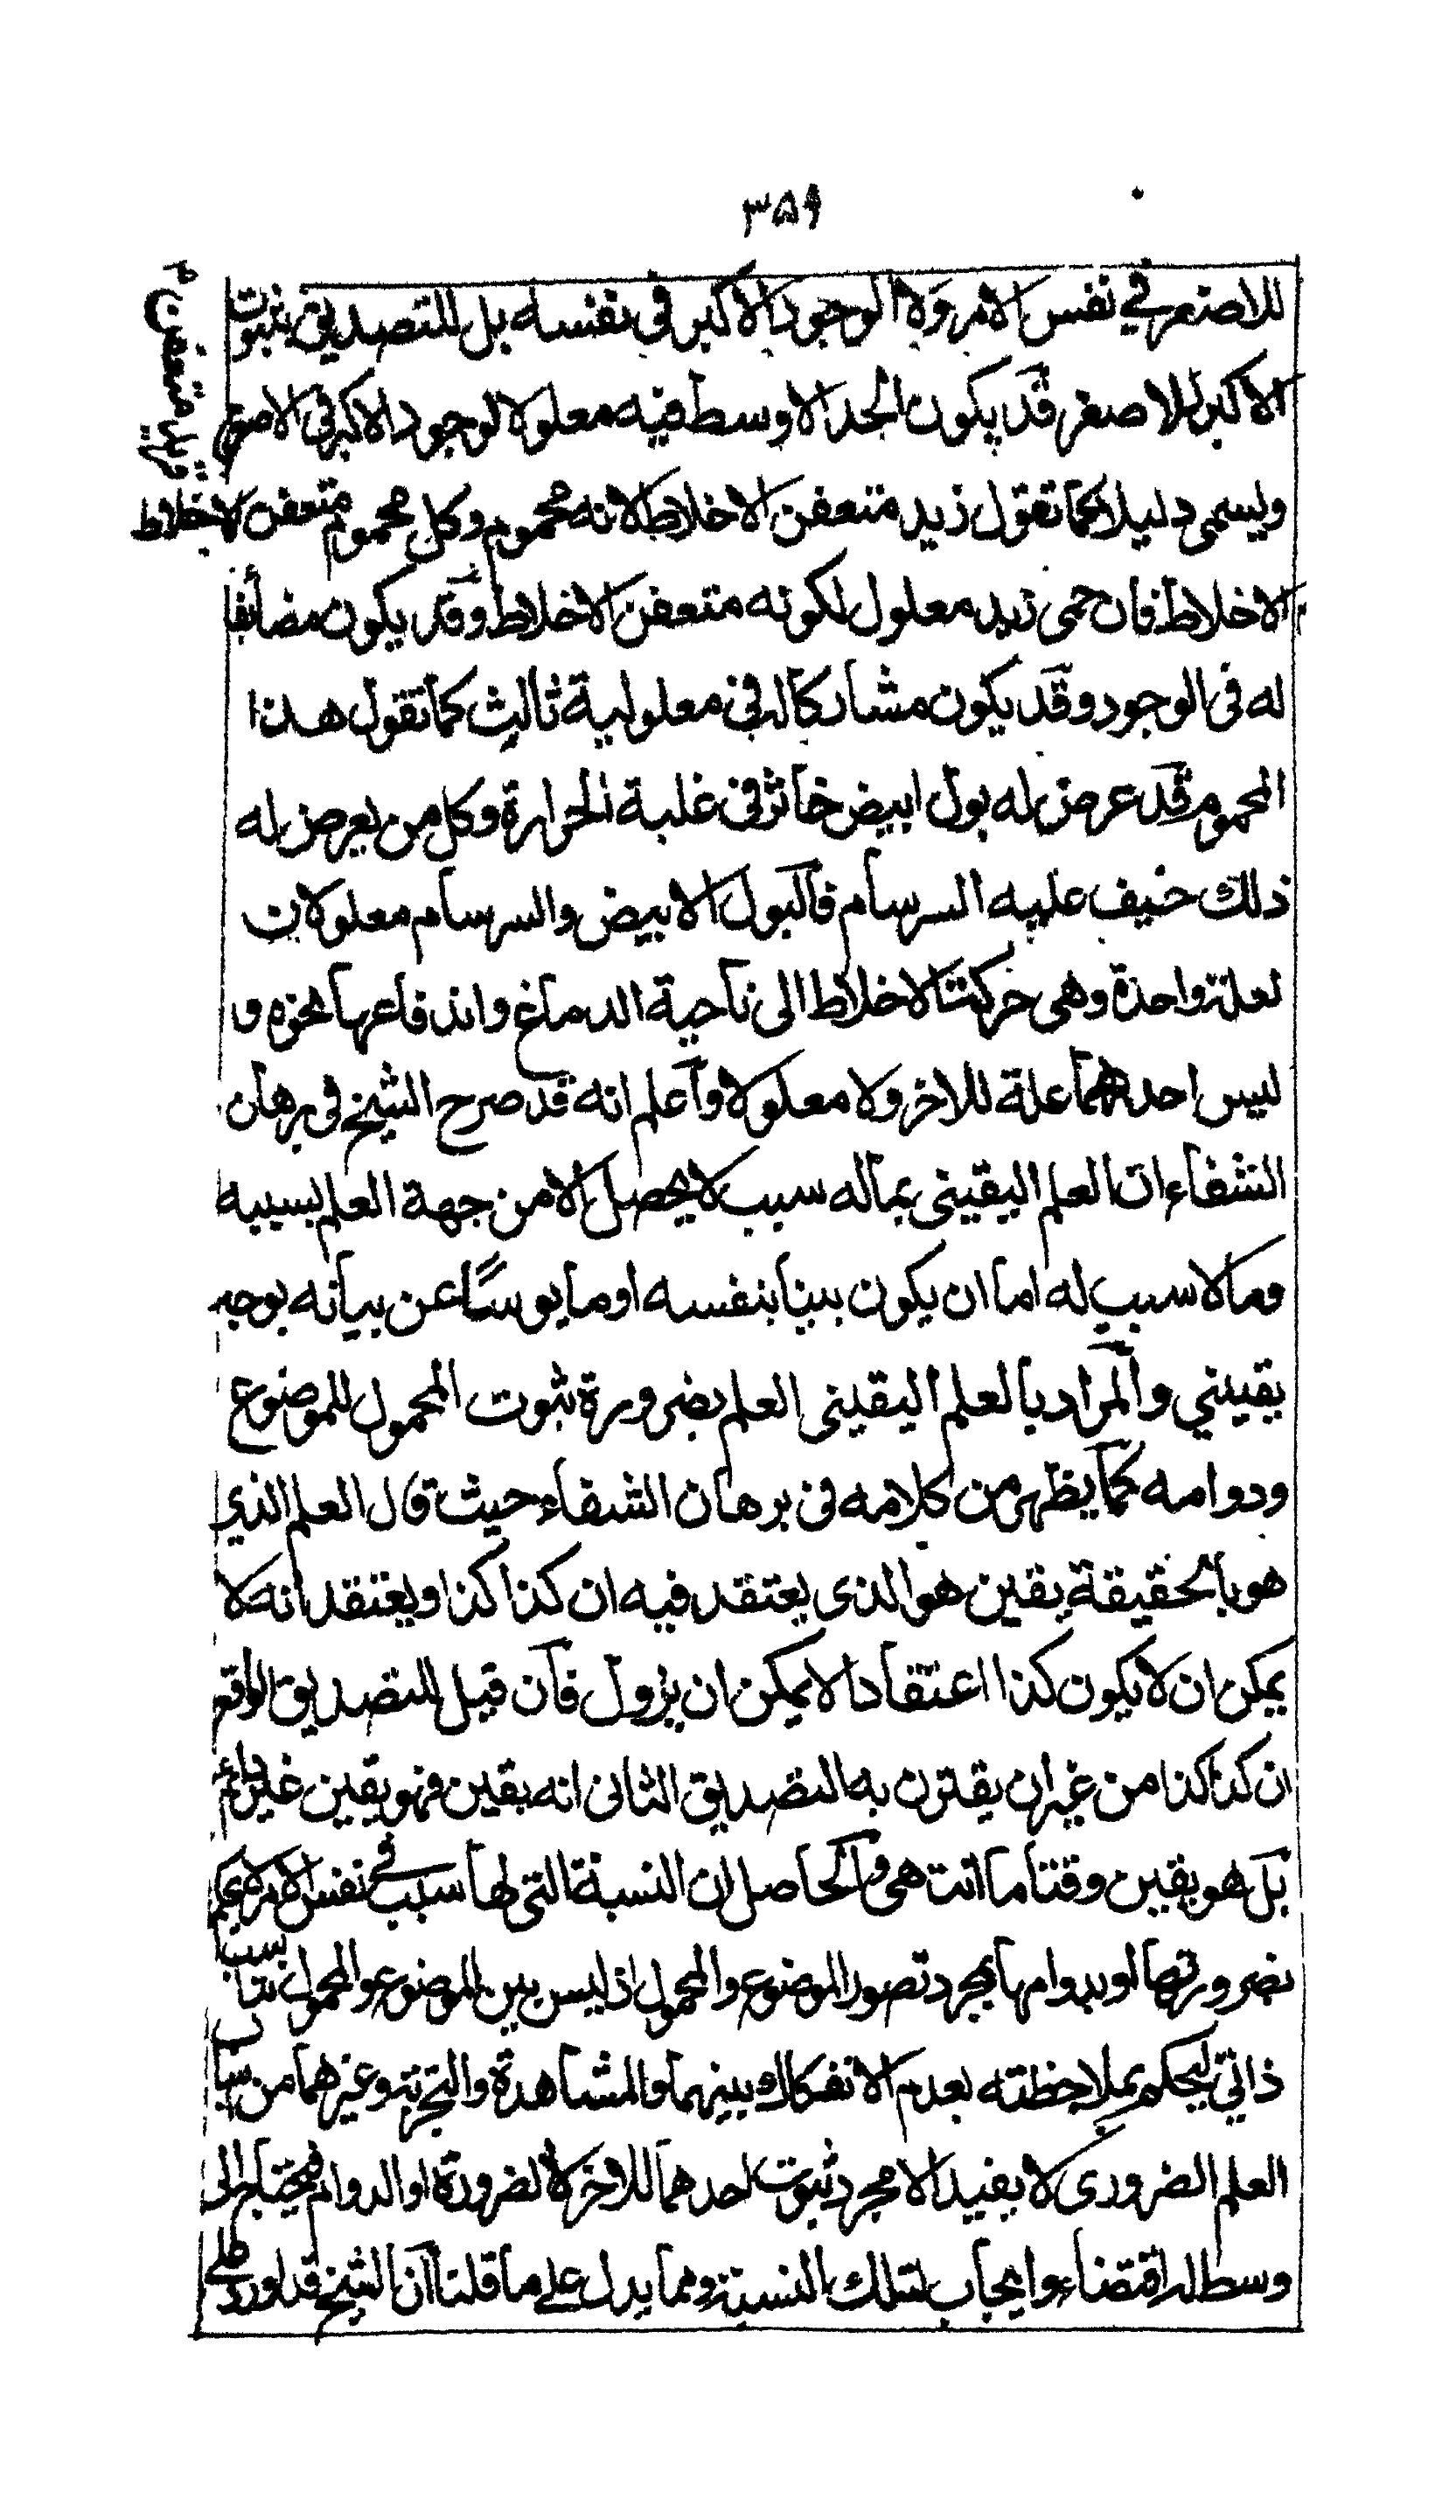 ۳۵۹
للاصغر في نفس الامر ولا لوجود الاكبر في نفسه بل للتصديق بثبوت
الاكبر للاصغر قد يكون الحد الاوسط فيه معلولا لوجود الاكبر في الاصغر
ويسمى دليلا كما تقول زيد متعفن الاخلاط لانه محموم وكل محموم متعفن الاخلاط
الاخلاط فان حمى زيد معلول لكونه متعفن الاخلاط وقد يكون مضائفا
له في الوجود وقد يكون مشاركا له في معلولية ثالث كما تقول هذا
المحموم قد عرض له بول ابيض خاثر في غلبة الحرارة وكل من يعرض له
ذلك خيف عليه السرسام فالبول الابيض والسرسام معلولان
لعلة واحدة وهي حركت الاخلاط الى ناحية الدماغ واندفاعها نحوه و
ليس احدهما علة للاخر ولا معلولا واعلم انه قد صرح الشيخ في برهان
الشفاء ان العلم اليقيني بماله سبب لا يحصل الا من جهة العلم بسببه
وما لا سبب له اما ان يكون بينا بنفسه او مايوسا عن بيانه بوجه
يقيني والمراد بالعلم اليقيني العلم بضرورة ثبوت المحمول للموضوع
ودوامه كما يظهر من كلامه في برهان الشفاء حيث قال العلم الذي
هو بالحقيقة يقين هو الذي يعتقد فيه ان كذا كذا ويعتقد انه لا
يمكن ان لا يكون كذا اعتقادا لا يمكن ان يزول فان قيل للتصديق الواقع
ان كذا كذا من غير ان يقترن به التصديق الثاني انه يقين فهو يقين غير دائم
بل هو يقين وقتا ما انت هى والحاصل ان النسبة التي لها سبب في نفس الامر لا يحكم
بضرورتها او بدوامها بمجرد تصور الموضوع والمحمول اذ ليس بين الموضوع والمحمول
ذاتي ليحكم بملاحظته بعدم الانفكاك بينهما والمشاهدة والتجربة وغيرهما من
العلم الضروري لا يفيد الا مجرد ثبوت احدهما للاخر لا لضرورة او الدوام فيحتاج الى
وسط له اقتضاء وايجاب لتلك النسبة ومما يدل على ما قلنا ان الشيخ قد اورد على